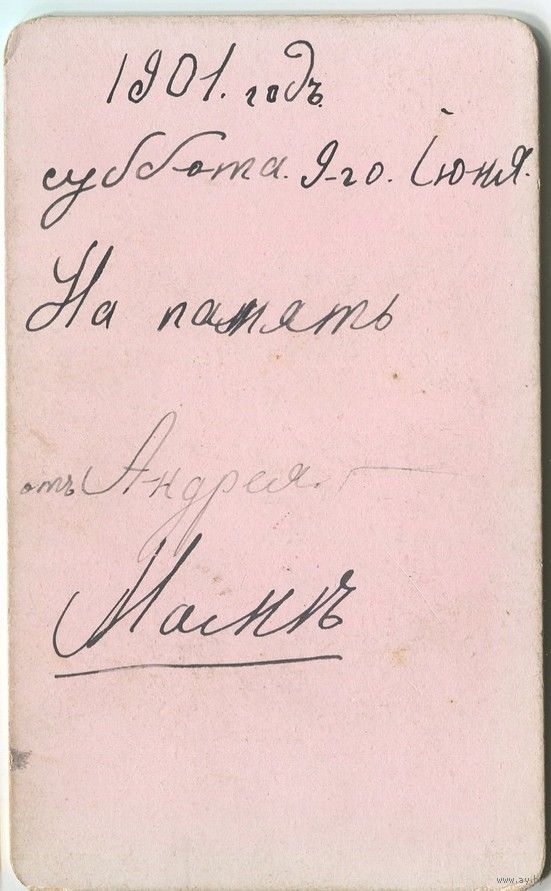 1901. годъ.
суббота. 9-го. Iюня.
На память
отъ Андрея.
www.ay.by